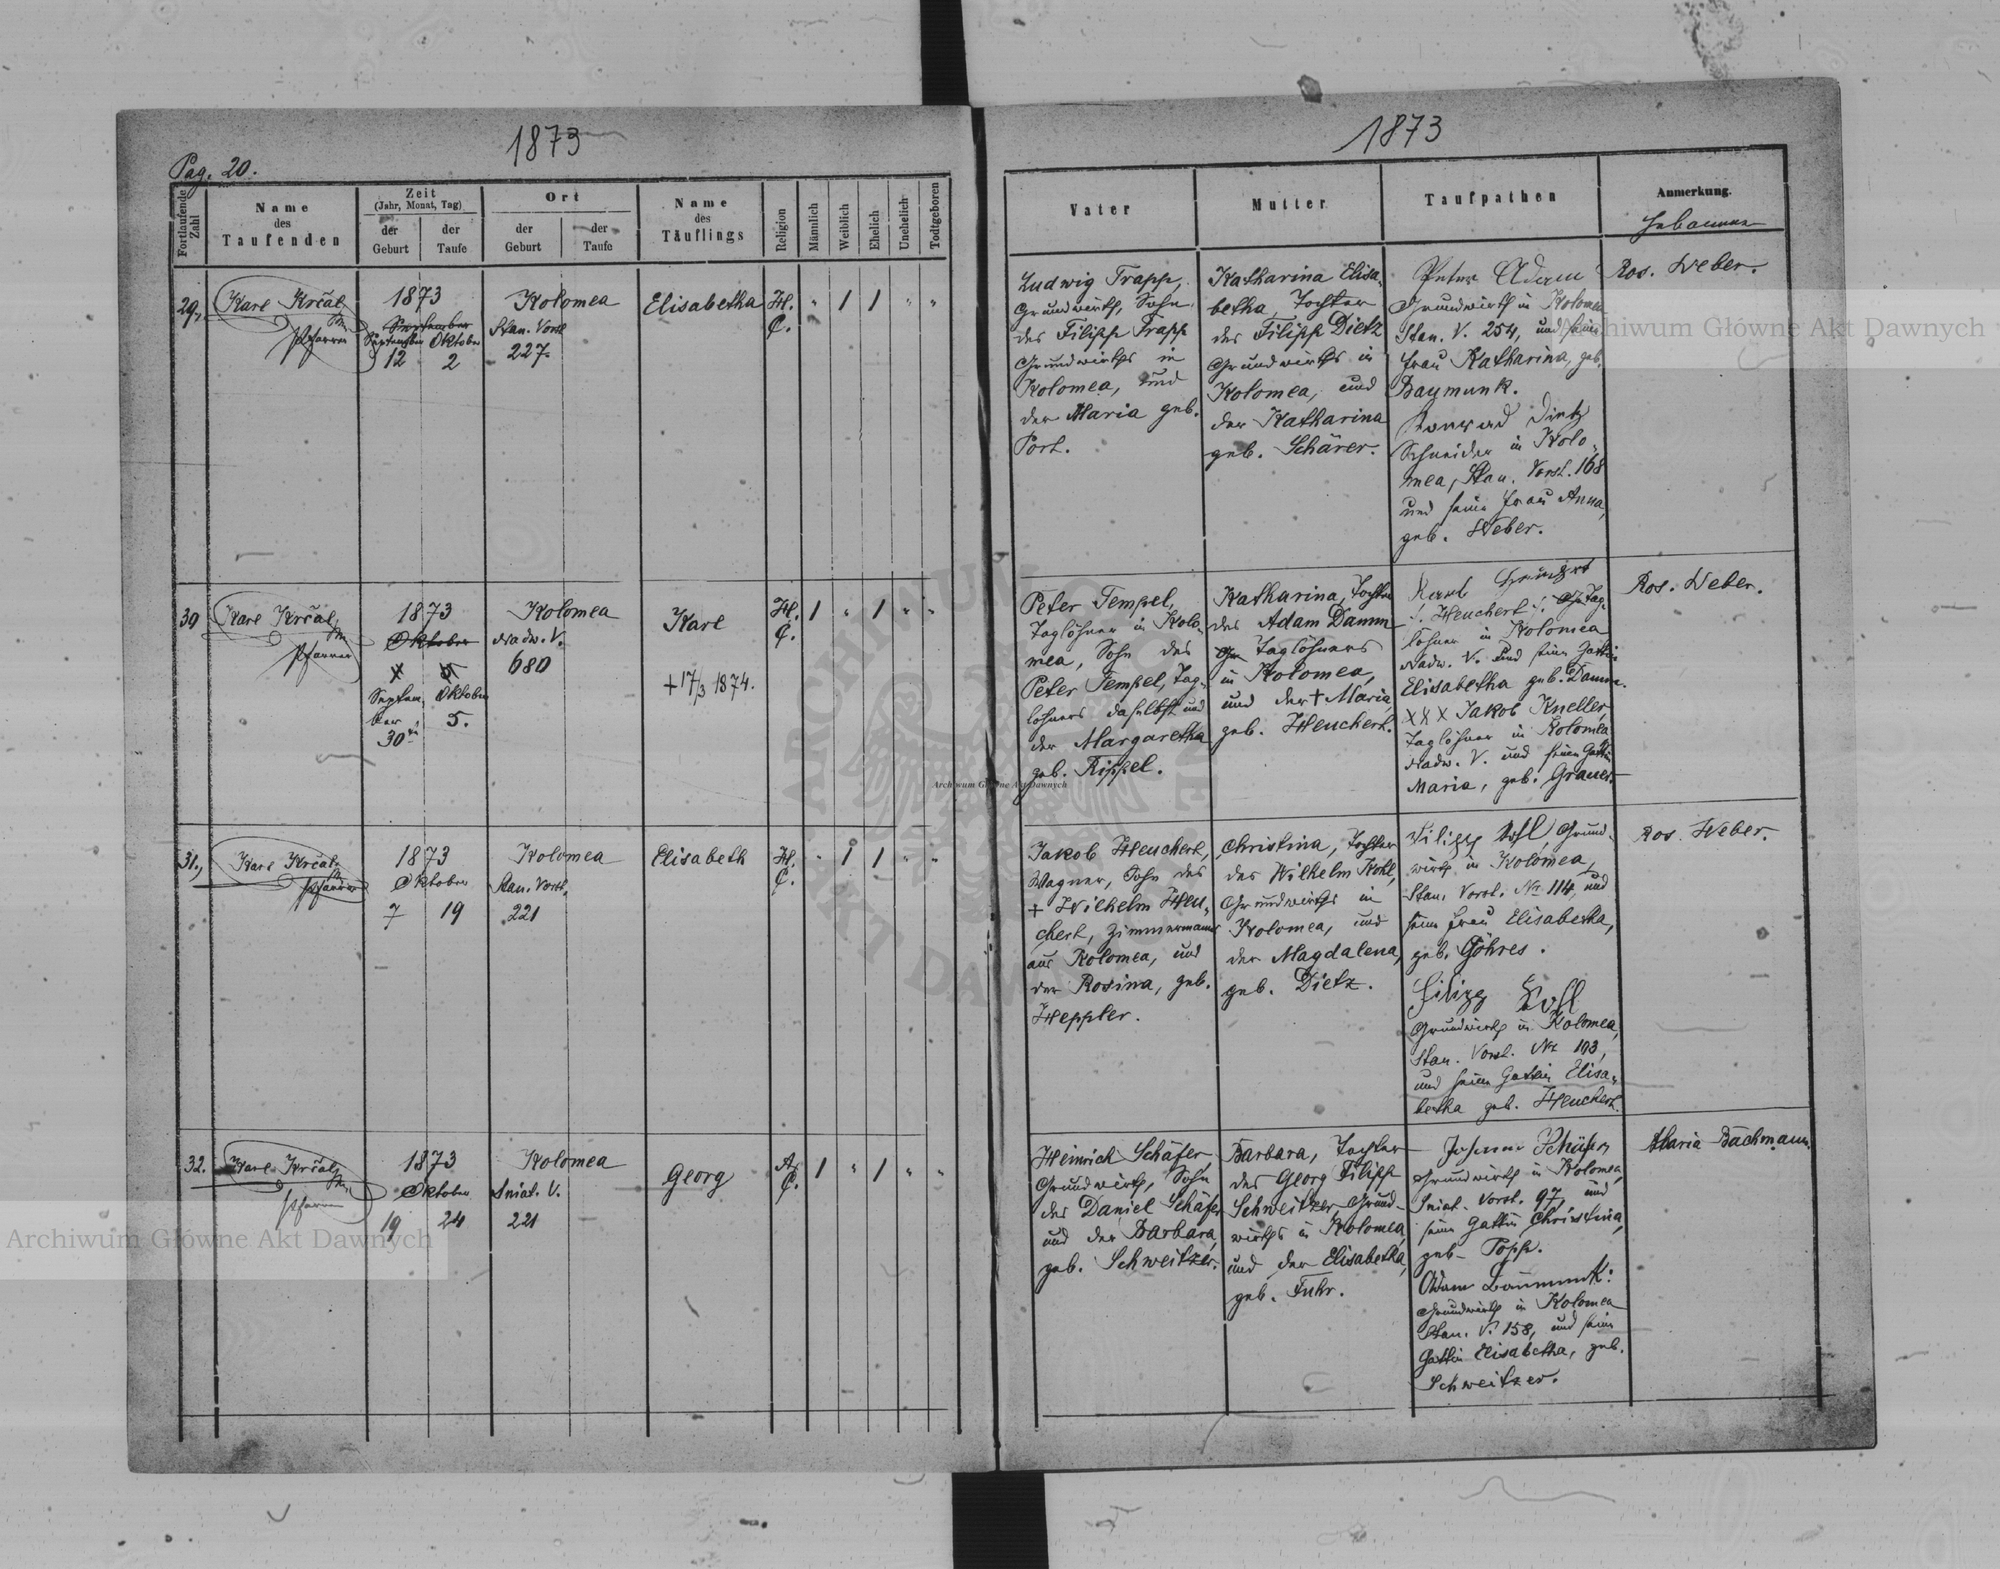 1873
Pag. 20.
Fortlaufende Zahl
Name des Taufenden
Zeit
(Jahr, Monat, Tag)
der Geburt
der Taufe
Ort
der Geburt
der Taufe
Name des Täuflings
Religion
Männlich
Weiblich
Ehelich
Unehelich
Todtgeboren
29.,
Karl Krčal
Pfarrer
1873
September
September Oktober
12 2
Kolomea
Stan. Vorst
227.
Elisabetha
H. C.
" 1 1 " "
30
Karl Krčal
Pfarrer
1873
Oktober
Septem- Oktober
ber 5.
30
Kolomea
Nadw. V.
680
Karl
+ 17/3 1874.
H. C.
1 " 1 " "
31.,
Karl Krčal
Pfarrer
1873
Oktober
7 19
Kolomea
Stan. Vorst.
221
Elisabeth
H. C.
" 1 1 " "
32.
Karl Krčal
Pfarrer
1873
Oktober
19 24
Kolomea
Sniat. V.
221
Georg
A. C.
1 " 1 " "
1873
Vater
Mutter
Taufpathen
Anmerkung.
Hebamme
Ludwig Trapp,
Grundwirth, Sohn
des Filipp Trapp
Grundwirths in
Kolomea, und
der Maria geb.
Port.
Katharina Elisa-
betha, Tochter
des Filipp Dietz
Grundwirths in
Kolomea, und
der Katharina
geb. Schärer.
Peter Adam
Grundwirth in Kolomea
Stan. V. 254, und seine
Frau Katharina, geb.
Baumunk.
Konrad Dietz
Schneider in Kolo-
mea, Stan. Vorst. 168
und seine Frau Anna,
geb. Weber.
Ros. Weber.
Peter Tempel,
Taglöhner in Kolo-
mea, Sohn des
Peter Tempel, Tag-
löhners daselbst und
der Margaretha
geb. Rippel.
Katharina, Tochter
des Adam Damm
Taglöhners
in Kolomea,
und der + Maria
geb. Heuchert.
Karl Heuchert
/: Heuchert :/ Tag-
löhner in Kolomea
Nadw. V. und seine Gattin
Elisabetha geb. Damm.
XXX Jakob Kneller,
Taglöhner in Kolomea
Nadw. V. und seine Gattin
Maria, geb. Grauer.
Ros. Weber.
Jakob Heuchert,
Wagner, Sohn des
+ Wilhelm Heu-
chert, Zimmermanns
aus Kolomea, und
der Rosina, geb.
Heppler.
Christina, Tochter
des Wilhelm Kohl,
Grundwirths in
Kolomea, und
der Magdalena,
geb. Dietz.
Filipp Grund-
wirth in Kolomea,
Stan. Vorst. No 114, und
seine Frau Elisabetha,
geb. Göhres.
Filipp Koll
Grundwirth in Kolomea,
Stan. Vorst. Nr 193,
und seine Gattin Elisa-
betha geb. Heuchert.
Ros. Weber.
Heinrich Schäfer,
Grundwirth, Sohn
des Daniel Schäfer
und der Barbara,
geb. Schweitzer.
Barbara, Tochter
des Georg Filipp
Schweitzer, Grund-
wirths in Kolomea,
und der Elisabetha,
geb. Fuhr.
Johann Schäfer
Grundwirth in Kolomea,
Sniat. Vorst. 97, und
seine Gattin Christina,
geb. Popp.
Adam Baumunk:
Grundwirth in Kolomea
Stan. V. 158, und seine
Gattin Elisabetha, geb.
Schweitzer.
Maria Bachmann.
Archiwum Główne Akt Dawnych
Archiwum Główne Akt Dawnych
Archiwum Główne Akt Dawnych
ARCHIWUM GŁÓWNE AKT DAWNYCH